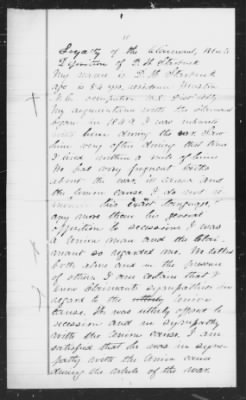 11
Loyalty of the Claimant, Mule
Deposition of P. H. Starbuck
My name is P. H. Starbuck
age is 54 yrs, residence
N.C. occupation
My acquaintance with the claimant
began in 1842 I was intimate
with him during the war. Saw
him very often during that time
I lived within a mile of him
We had very frequent talks
about the war, its causes and
the Union cause. I do not re
member his exact language,
any more than his general
opposition to secession. I was
a Union man and the Clai
mant so regarded me. We talked
both alone and in the presence
of others. I am certain that I
knew claimants sympathies in
regard to the utterly Union
cause. He was utterly opposed to
secession and in sympathy
with the Union cause. I am
satisfied that he was in sym-
pathy with the Union cause
during the whole of the war.